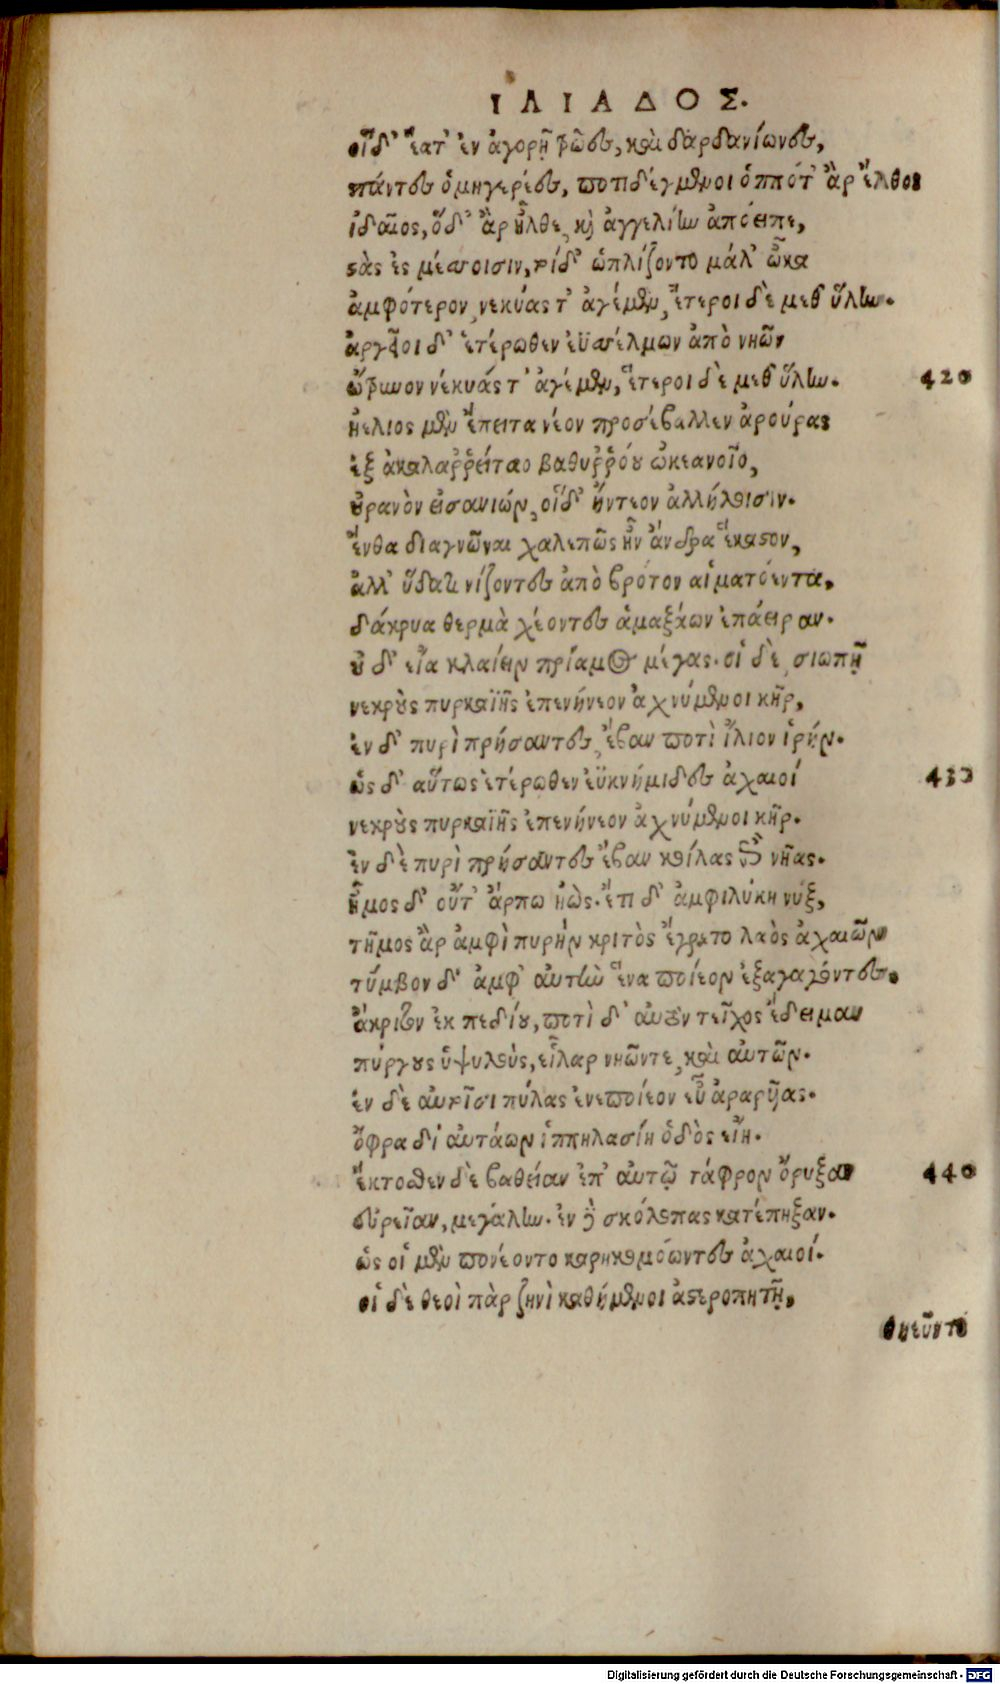 ΙΛΙΑΔΟΣ.
οἵδ' ἕατ' ἐν ἀγορῇ τρῶες, καὶ δαρδανίωνες,
πάντες ὁμηγερέες, ποτιδέγμενοι ὁππότ' ἂρ ἔλθοι
ἰδαῖος, ὅδ' ἂρ ἦλθε, καὶ ἀγγελίην ἀπόειπε,
στὰς ἐς μέσσοισιν, τοίδ' ὡπλίζοντο μάλ' ὦκα
ἀμφότερον, νεκύας τ' ἀγέμεν, ἕτεροι δὲ μεθ' ὕλην.
ἀργεῖοι δ' ἑτέρωθεν ἐϋσσέλμων ἀπὸ νηῶν
ὤτρυνον νέκυάς τ' ἀγέμεν, ἕτεροι δὲ μεθ' ὕλην. 420
ἠέλιος μὲν ἔπειτα νέον προσέβαλλεν ἀρούρας
ἐξ ἀκαλαῤῥείταο βαθυῤῥόου ὠκεανοῖο,
οὐρανὸν εἰσανιών, οἵδ' ἤντεον ἀλλήλοισιν.
ἔνθα διαγνῶναι χαλεπῶς ἦν ἄνδρα ἕκαστον,
ἀλλ' ὕδατι νίζοντες ἀπὸ βρότον αἱματόεντα,
δάκρυα θερμὰ χέοντες ἁμαξάων ἐπάειραν.
οὐδ' εἴα κλαίειν πρίαμος μέγας. οἱ δὲ, σιωπῇ
νεκροὺς πυρκαϊῆς ἐπενήνεον ἀχνύμενοι κῆρ,
ἐν δ' πυρὶ πρήσαντες, ἔβαν ποτὶ ἴλιον ἱρήν.
ὡς δ' αὔτως ἑτέρωθεν ἐϋκνήμιδες ἀχαιοί 430
νεκροὺς πυρκαϊῆς ἐπενήνεον ἀχνύμενοι κῆρ.
ἐν δὲ πυρὶ πρήσαντες ἔβαν κοίλας ἐπὶ νῆας.
ἦμος δ' οὔτ' ἄρπω ἠὼς. ἔτι δ' ἀμφιλύκη νύξ,
τῆμος ἂρ ἀμφὶ πυρὴν κριτὸς ἔγρετο λαὸς ἀχαιῶν
τύμβον δ' ἀμφ' αὐτὴν ἕνα ποίεον ἐξαγαγόντες.
ἄκριτον ἐκ πεδίου, ποτὶ δ' αὐτὸν τεῖχος ἔδειμαν
πύργους ὑψυλοὺς, εἶλαρ νηῶντε, καὶ αὐτῶν.
ἐν δὲ αὐτοῖσι πύλας ἐνεποίεον εὖ ἀραρῦιας.
ὄφρα δι' αὐτάων ἱππηλασίη ὁδὸς εἴη.
ἔκτοσθεν δὲ βαθεῖαν ἐπ' αὐτῷ τάφρον ὄρυξαν 440
εὐρεῖαν, μεγάλην. ἐν δὲ σκόλοπας κατέπηξαν.
ὡς οἱ μὲν πονέοντο καρηκομόωντες ἀχαιοί.
οἱ δὲ θεοὶ πὰρ ζηνὶ καθήμενοι ἀστεροπητῇ,
θηεῦντο
Digitalisierung gefördert durch die Deutsche Forschungsgemeinschaft - DFG